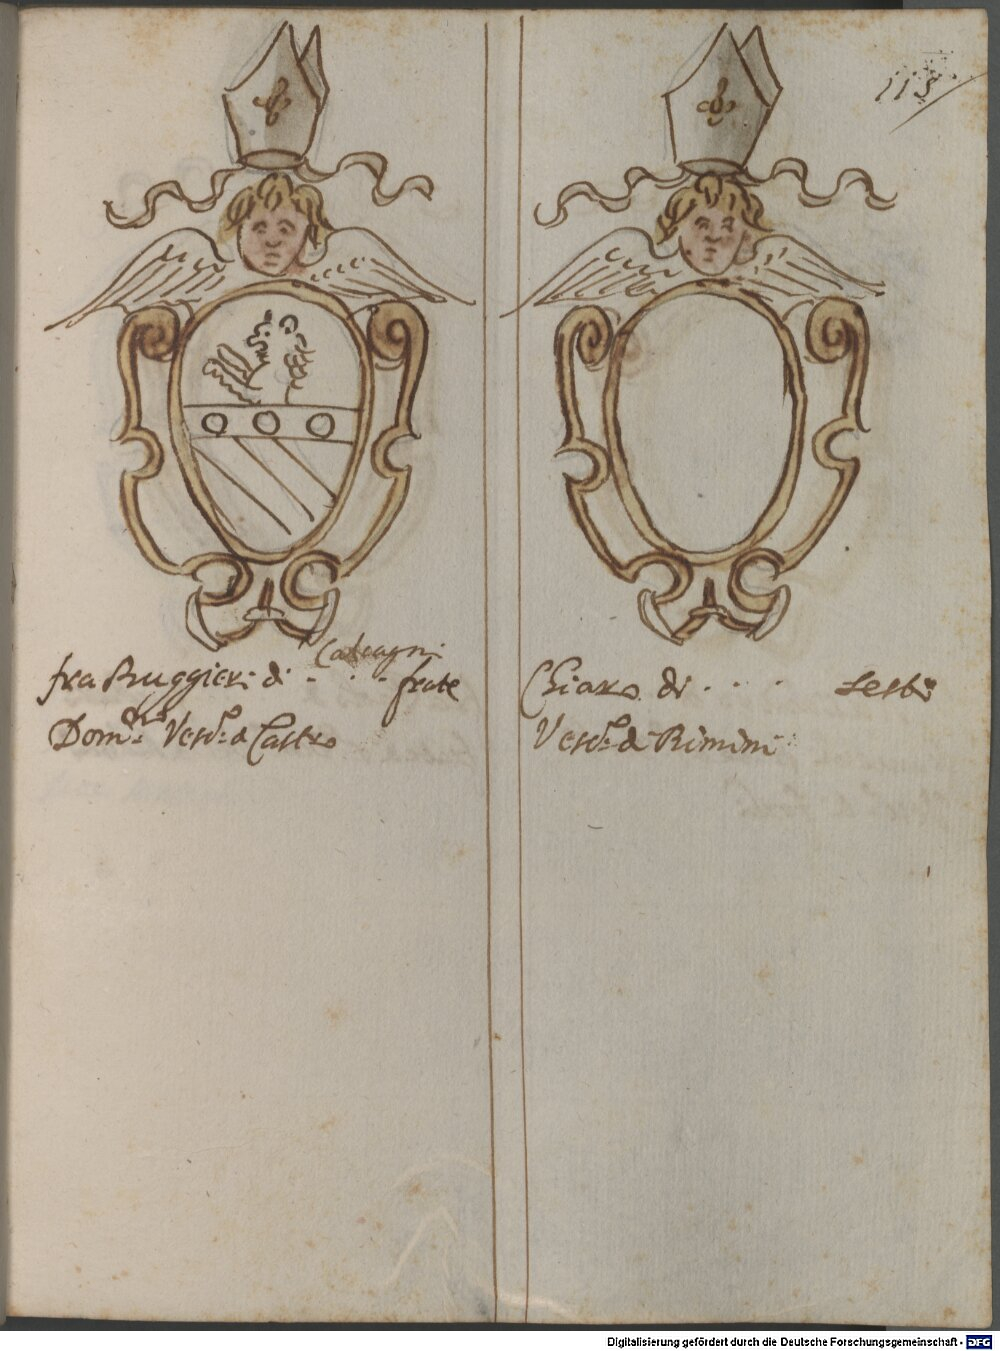 113.
Calcagni
fra Ruggieri di . . . frate
Domco. Vesco: di Castro
Chiaro di . . . .
Vesco: di Rimini
Digitalisierung gefördert durch die Deutsche Forschungsgemeinschaft - DFG